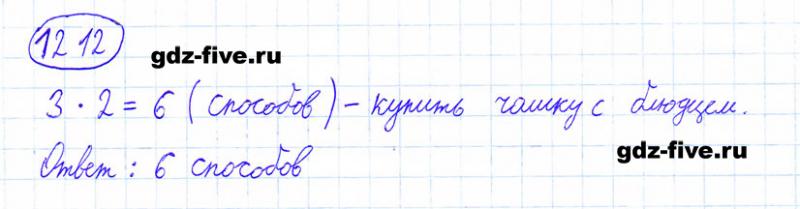 1212
gdz-five.ru
3 · 2 = 6 (способов) - купить чашку с блюдцем.
Ответ: 6 способов
gdz-five.ru